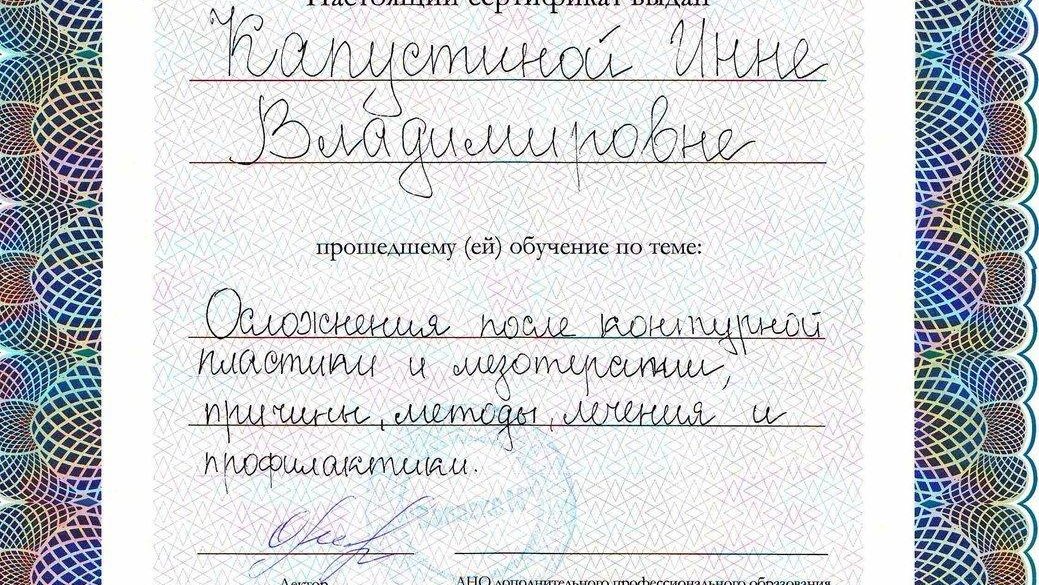 Настоящий сертификат выдан
Капустиной Инне
Владимировне
прошедшему (ей) обучение по теме:
Осложнения после контурной
пластики и мезотерапии,
причины, методы, лечения и
профилактики.
Лектор
АНО дополнительного профессионального образования